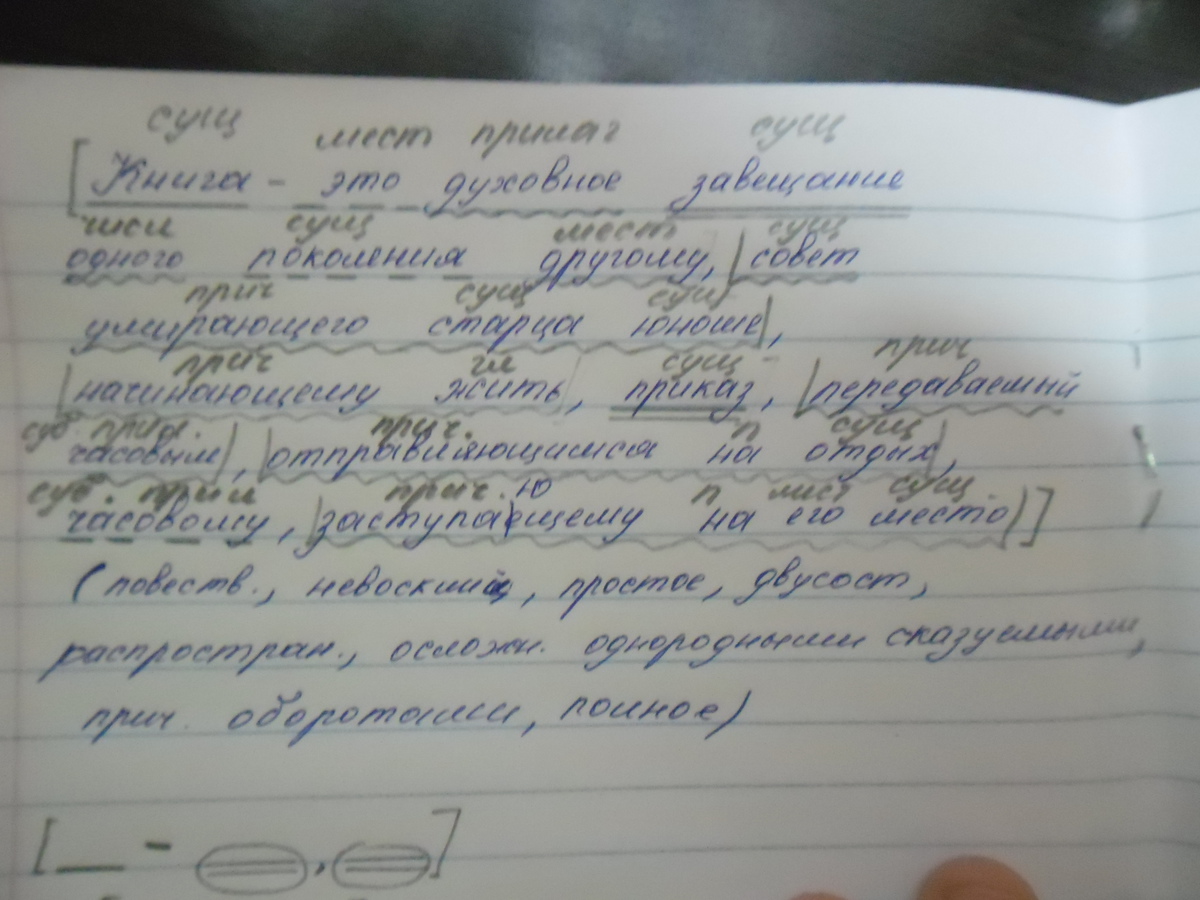 сущ мест прилаг сущ
[Книга - это духовное завещание
числ сущ мест сущ
одного поколения другому, |совет
прич сущ сущ
умирающего старца юноше|,
прич гл сущ прич
|начинающему жить|, приказ, |передаваемый
суб. прил. прич. п сущ
часовым|, |отправляющимся на отдых|,
суб. прил прич. ю п мест сущ
часовому, |заступающему на его место|]
(повеств., невосклиц, простое, двусост,
распростран., осложн. однородными сказуемыми,
прич. оборотами, полное)
[ - , ]